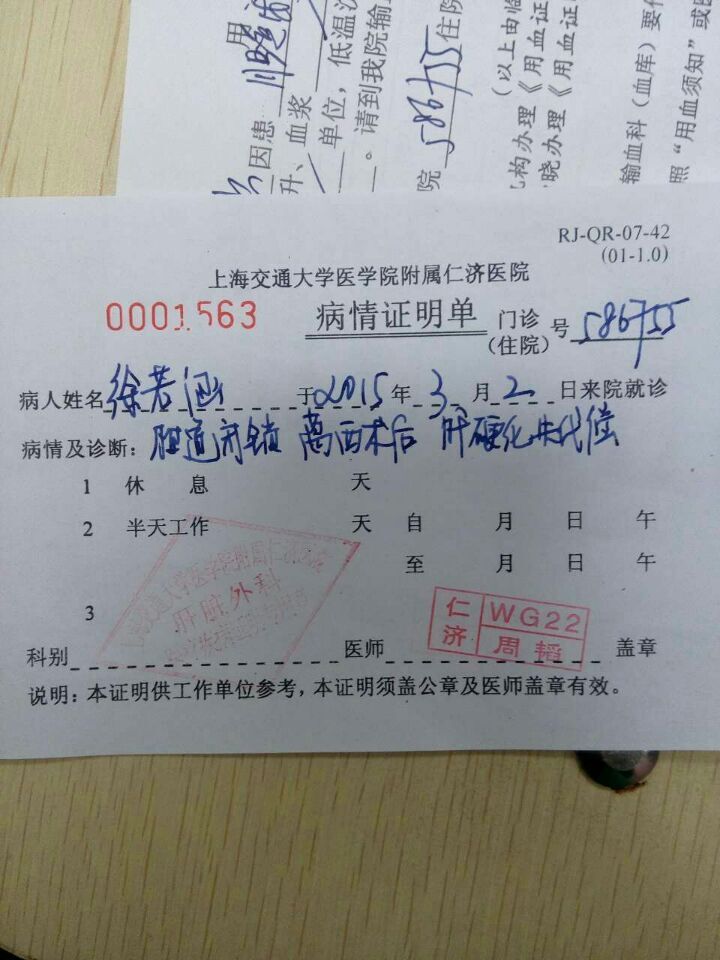 用
因患 胆道闭
升、血浆
单位，低温沉
。请到我院输
院 586755 住院
（以上由临
机构办理《用血证
晓办理《用血证
输血科（血库）要什
照“用血须知”或
RJ-QR-07-42
(01-1.0)
上海交通大学医学院附属仁济医院
0001563 病情证明单 门诊（住院）号 586755
病人姓名 徐若涵 于 2015 年 3 月 2 日来院就诊
病情及诊断：胆道闭锁 葛西术后 肝硬化失代偿
1 休 息 天
2 半天工作 天 自 月 日 午
至 月 日 午
3
上海交通大学医学院附属仁济医院
肝脏外科
仁济 WG22 周韬
科别 医师 盖章
说明：本证明供工作单位参考，本证明须盖公章及医师盖章有效。